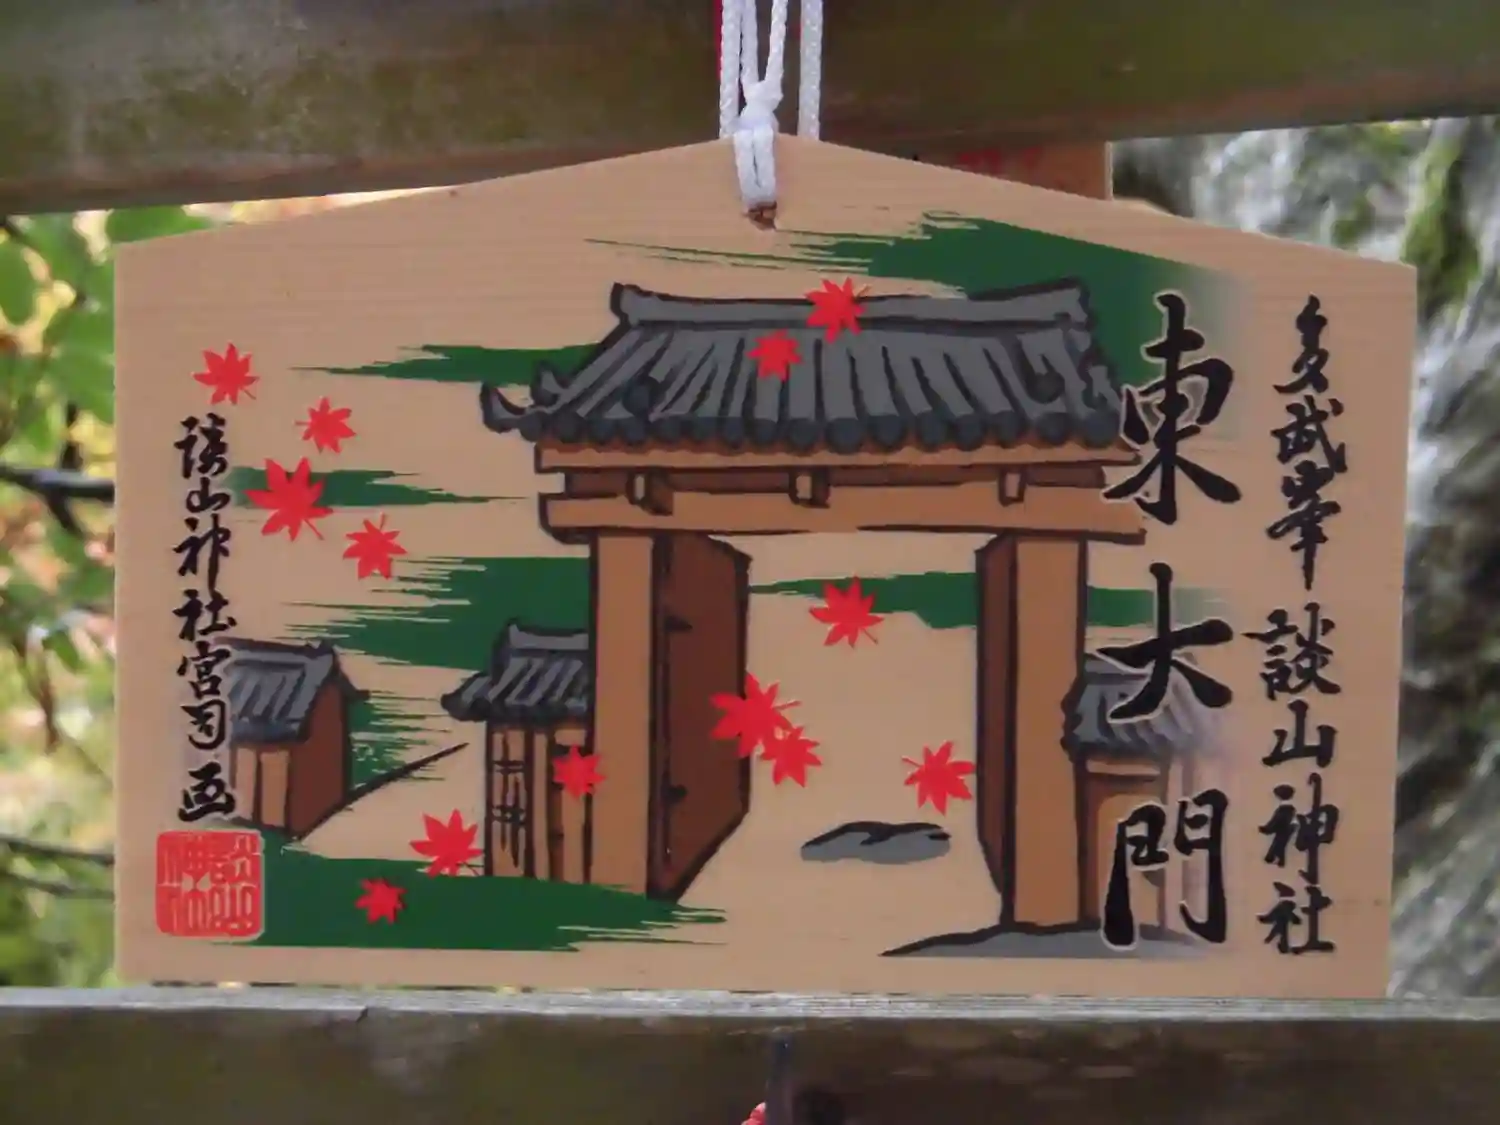 多武峯 談山神社
東大門
談山神社宮司画
談山
神社